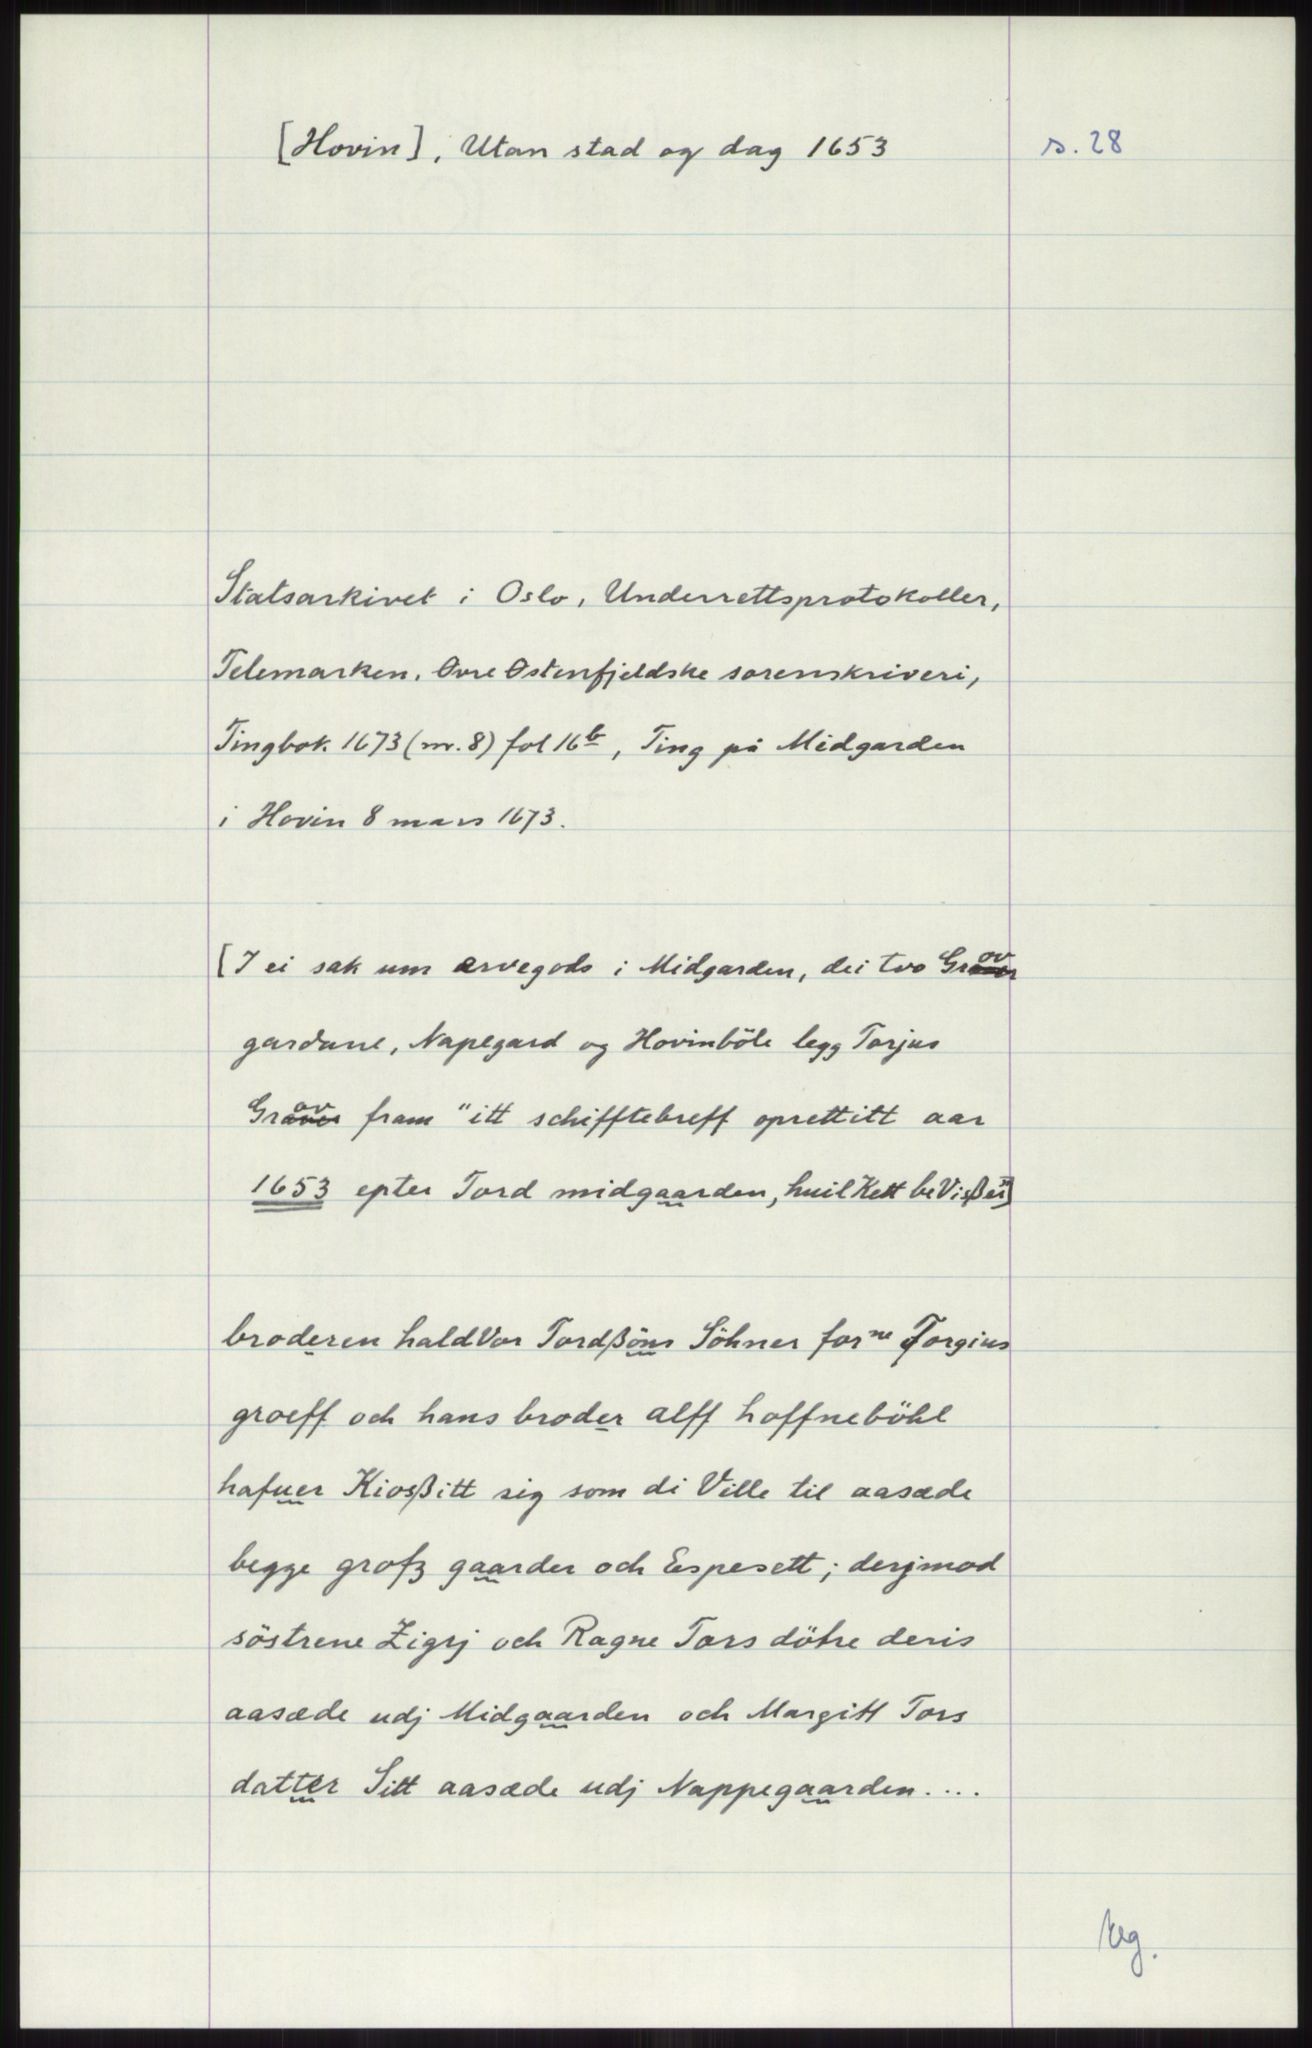 [Hovin], Utan stad og dag 1653
s. 28
Statsarkivet i Oslo, Underrettsprotokoller,
Telemarken, Øvre Østenfjeldske sorenskriveri,
Tingbok 1673 (nr. 8) fol 16b, Ting på Midgarden
i Hovin 8 mars 1673.
[I ei sak um arvegods i Midgarden, dei tvo Grov
gardane, Napegard og Hovinböle legg Torjus
Grov fram "itt schifftebreff oprettitt aar
1653 epter Tord midgaarden, huilKett beVisßer"]
broderen haldVor Tordßöns Söhner forne Torgius
groeff och hans broder alff hoffneböhl
hafuer Kiosßitt sig som di Ville til aasæde
begge grofz gaarder och Espesett; derjmod
söstrene Zigrj och Ragne Tors döhre deris
aasæde udj Midgaarden och Margitt Tors
datter Sitt aasæde udj Nappegaarden....